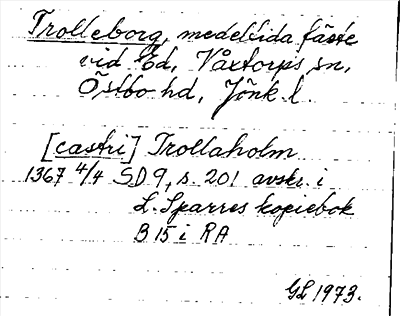 Trolleborg, medeltida fäste
vid Ed, Våxtorps sn,
Östbo hd, Jönk l.
[castri] Trollaholm
1367 4/4 SD 9, s. 201 avskr. i
L. Sparres kopiebok
B 15 i RA
GL 1973.